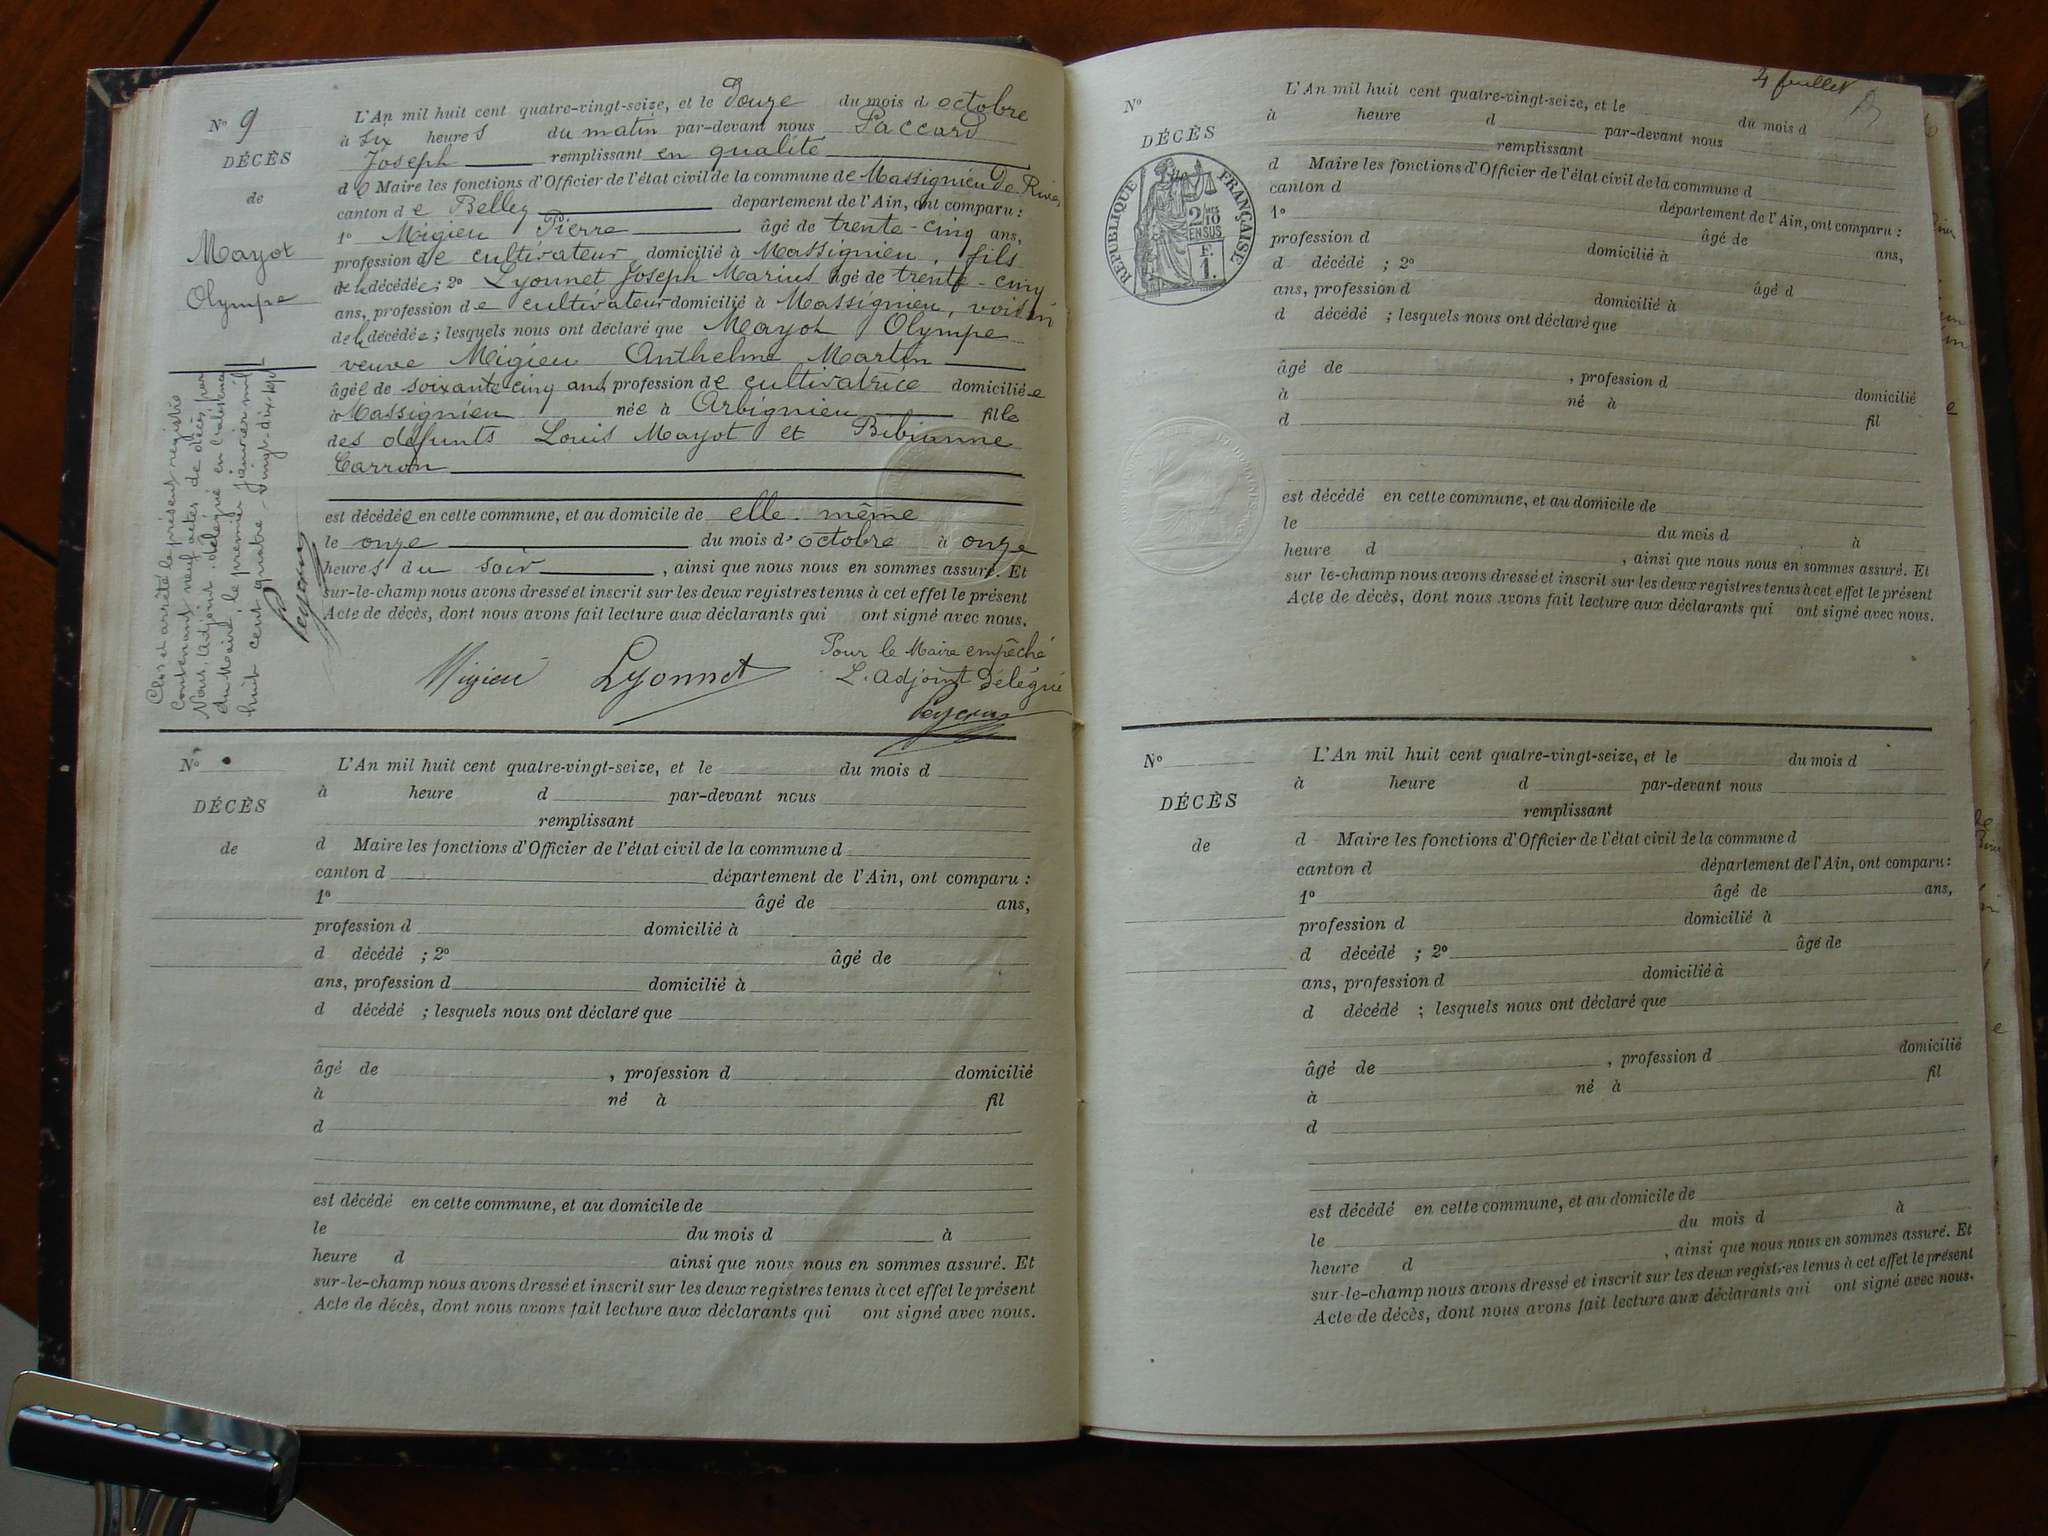 N° 9
DÉCÈS
de
Mayot
Olympe
L'An mil huit cent quatre-vingt-seize, et le Douze du mois d octobre
à six heures du matin par-devant nous Paccard
Joseph remplissant en qualité
de Maire les fonctions d'Officier de l'état civil de la commune de Massignieu De Rives
canton de Belley département de l'Ain, ont comparu :
1° Migieu Pierre âgé de trente-cinq ans,
profession de cultivateur domicilié à Massignieu, fils
de la décédée ; 2° Lyonnet Joseph Marius âgé de trente-cinq
ans, profession de cultivateur domicilié à Massignieu, voisin
de la décédée ; lesquels nous ont déclaré que Mayot Olympe
veuve Migieu Anthelme Martin
âgée de soixante cinq ans, profession de cultivatrice domiciliée
à Massignieu née à Arbignieu fille
des défunts Louis Mayot et Bibianne
Carron
est décédée en cette commune, et au domicile de elle-même
le onze du mois d'octobre à onze
heures du soir, ainsi que nous nous en sommes assuré. Et
sur-le-champ nous avons dressé et inscrit sur les deux registres tenus à cet effet le présent
Acte de décès, dont nous avons fait lecture aux déclarants qui ont signé avec nous.
Migieu Lyonnet Pour le Maire empêché
L'adjoint Délégué
Clos et arrêté le présent registre
Contenant neuf actes de décès par
Nous, Adjoint délégué en l'absence
du Maire, le premier janvier mil
huit cent quatre-vingt-dix-sept
N°
DÉCÈS
de
L'An mil huit cent quatre-vingt-seize, et le du mois d
à heure d par-devant nous
remplissant
d Maire les fonctions d'Officier de l'état civil de la commune d
canton d département de l'Ain, ont comparu :
1° âgé de ans,
profession d domicilié à
d décédé ; 2° âgé de
ans, profession d domicilié à
d décédé ; lesquels nous ont déclaré que
âgé de , profession d domicilié
à né à fil
d
est décédé en cette commune, et au domicile de
le du mois d à
heure d ainsi que nous nous en sommes assuré. Et
sur-le-champ nous avons dressé et inscrit sur les deux registres tenus à cet effet le présent
Acte de décès, dont nous avons fait lecture aux déclarants qui ont signé avec nous.
4 feuillet
N°
DÉCÈS
RÉPUBLIQUE FRANÇAISE
2/10
EN SUS
F.
1.
L'An mil huit cent quatre-vingt-seize, et le du mois d
à heure d par-devant nous
remplissant
d Maire les fonctions d'Officier de l'état civil de la commune d
canton d département de l'Ain, ont comparu :
1° âgé de ans,
profession d domicilié à
d décédé ; 2° âgé d
ans, profession d domicilié à
d décédé ; lesquels nous ont déclaré que
âgé de , profession d domicilié
à né à fil
d
est décédé en cette commune, et au domicile de
le du mois d à
heure d , ainsi que nous nous en sommes assuré. Et
sur le-champ nous avons dressé et inscrit sur les deux registres tenus à cet effet le présent
Acte de décès, dont nous avons fait lecture aux déclarants qui ont signé avec nous.
N°
DÉCÈS
de
L'An mil huit cent quatre-vingt-seize, et le du mois d
à heure d par-devant nous
remplissant
d Maire les fonctions d'Officier de l'état civil de la commune d
canton d département de l'Ain, ont comparu :
1° âgé de ans,
profession d domicilié à
d décédé ; 2° âgé de
ans, profession d domicilié à
d décédé ; lesquels nous ont déclaré que
âgé de , profession d domicilié
à né à fil
d
est décédé en cette commune, et au domicile de
le du mois d à
heure d , ainsi que nous nous en sommes assuré. Et
sur-le-champ nous avons dressé et inscrit sur les deux registres tenus à cet effet le présent
Acte de décès, dont nous avons fait lecture aux déclarants qui ont signé avec nous.